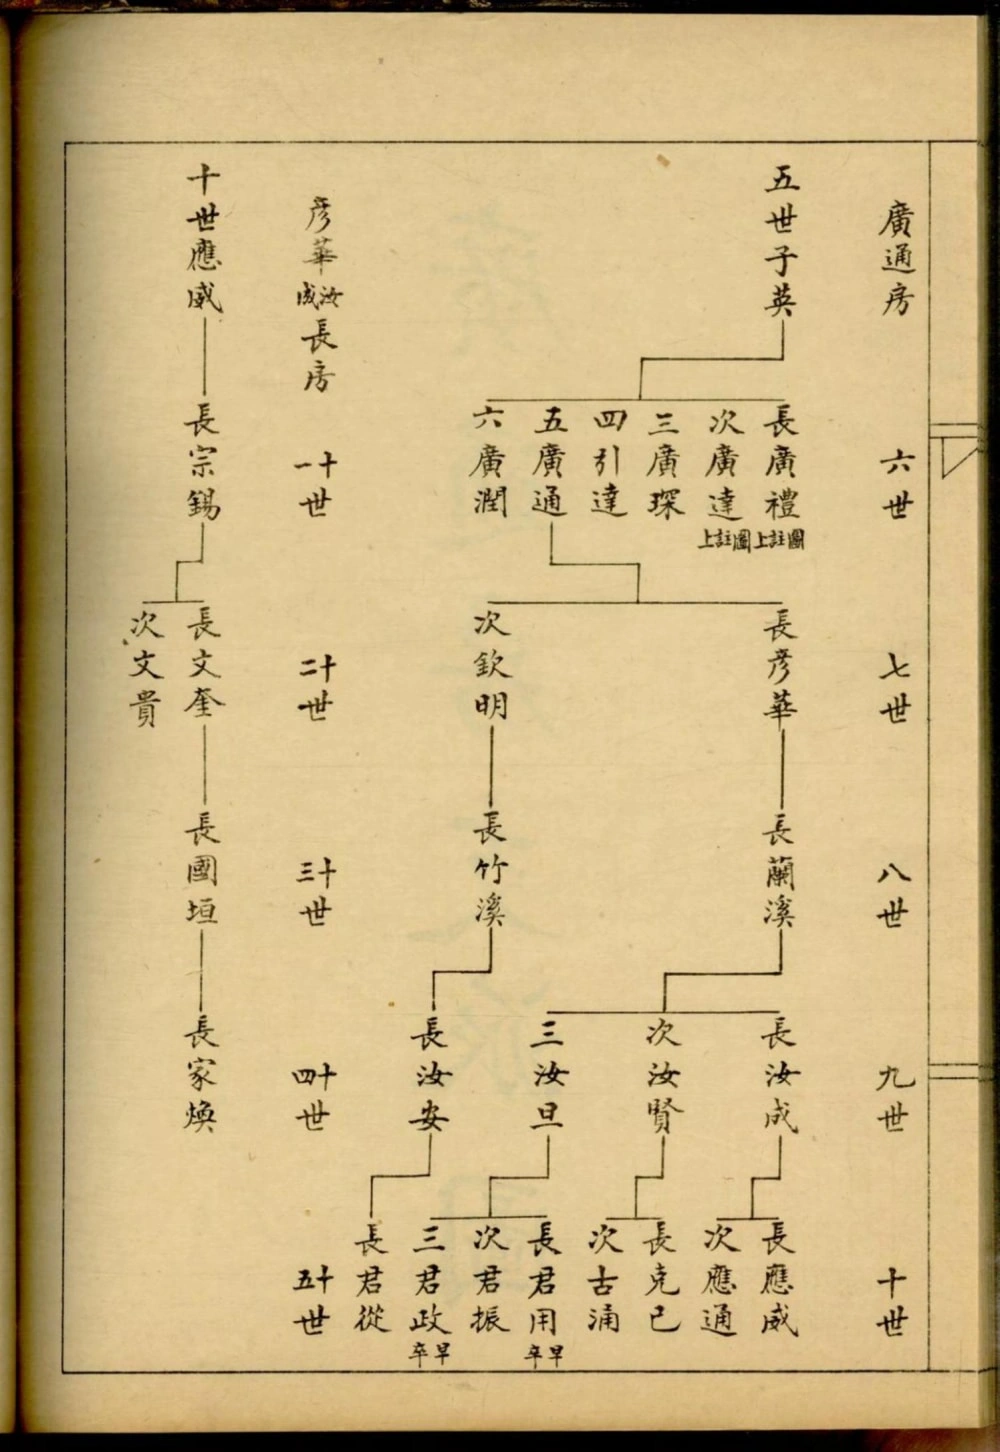 廣通房
六世
七世
八世
九世
十世
五世子英
長廣禮
圖註上
次廣達
圖註上
三廣琛
四引達
五廣通
六廣潤
長彦華
次欽明
長蘭溪
長竹溪
長汝成
次汝賢
三汝旦
長汝安
長應威
次應通
長克已
次古涌
長君用
早卒
次君振
三君政
早卒
長君從
彦華汝成長房
十一世
十二世
十三世
十四世
十五世
十世應威
長宗錫
長文奎
次文貴
長國垣
長家煥